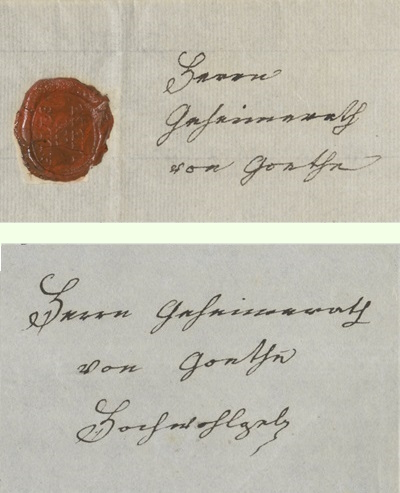 Herrn
Geheimerath
von Goethe
Herrn Geheimerath
von Goethe
Hochwohlgeb